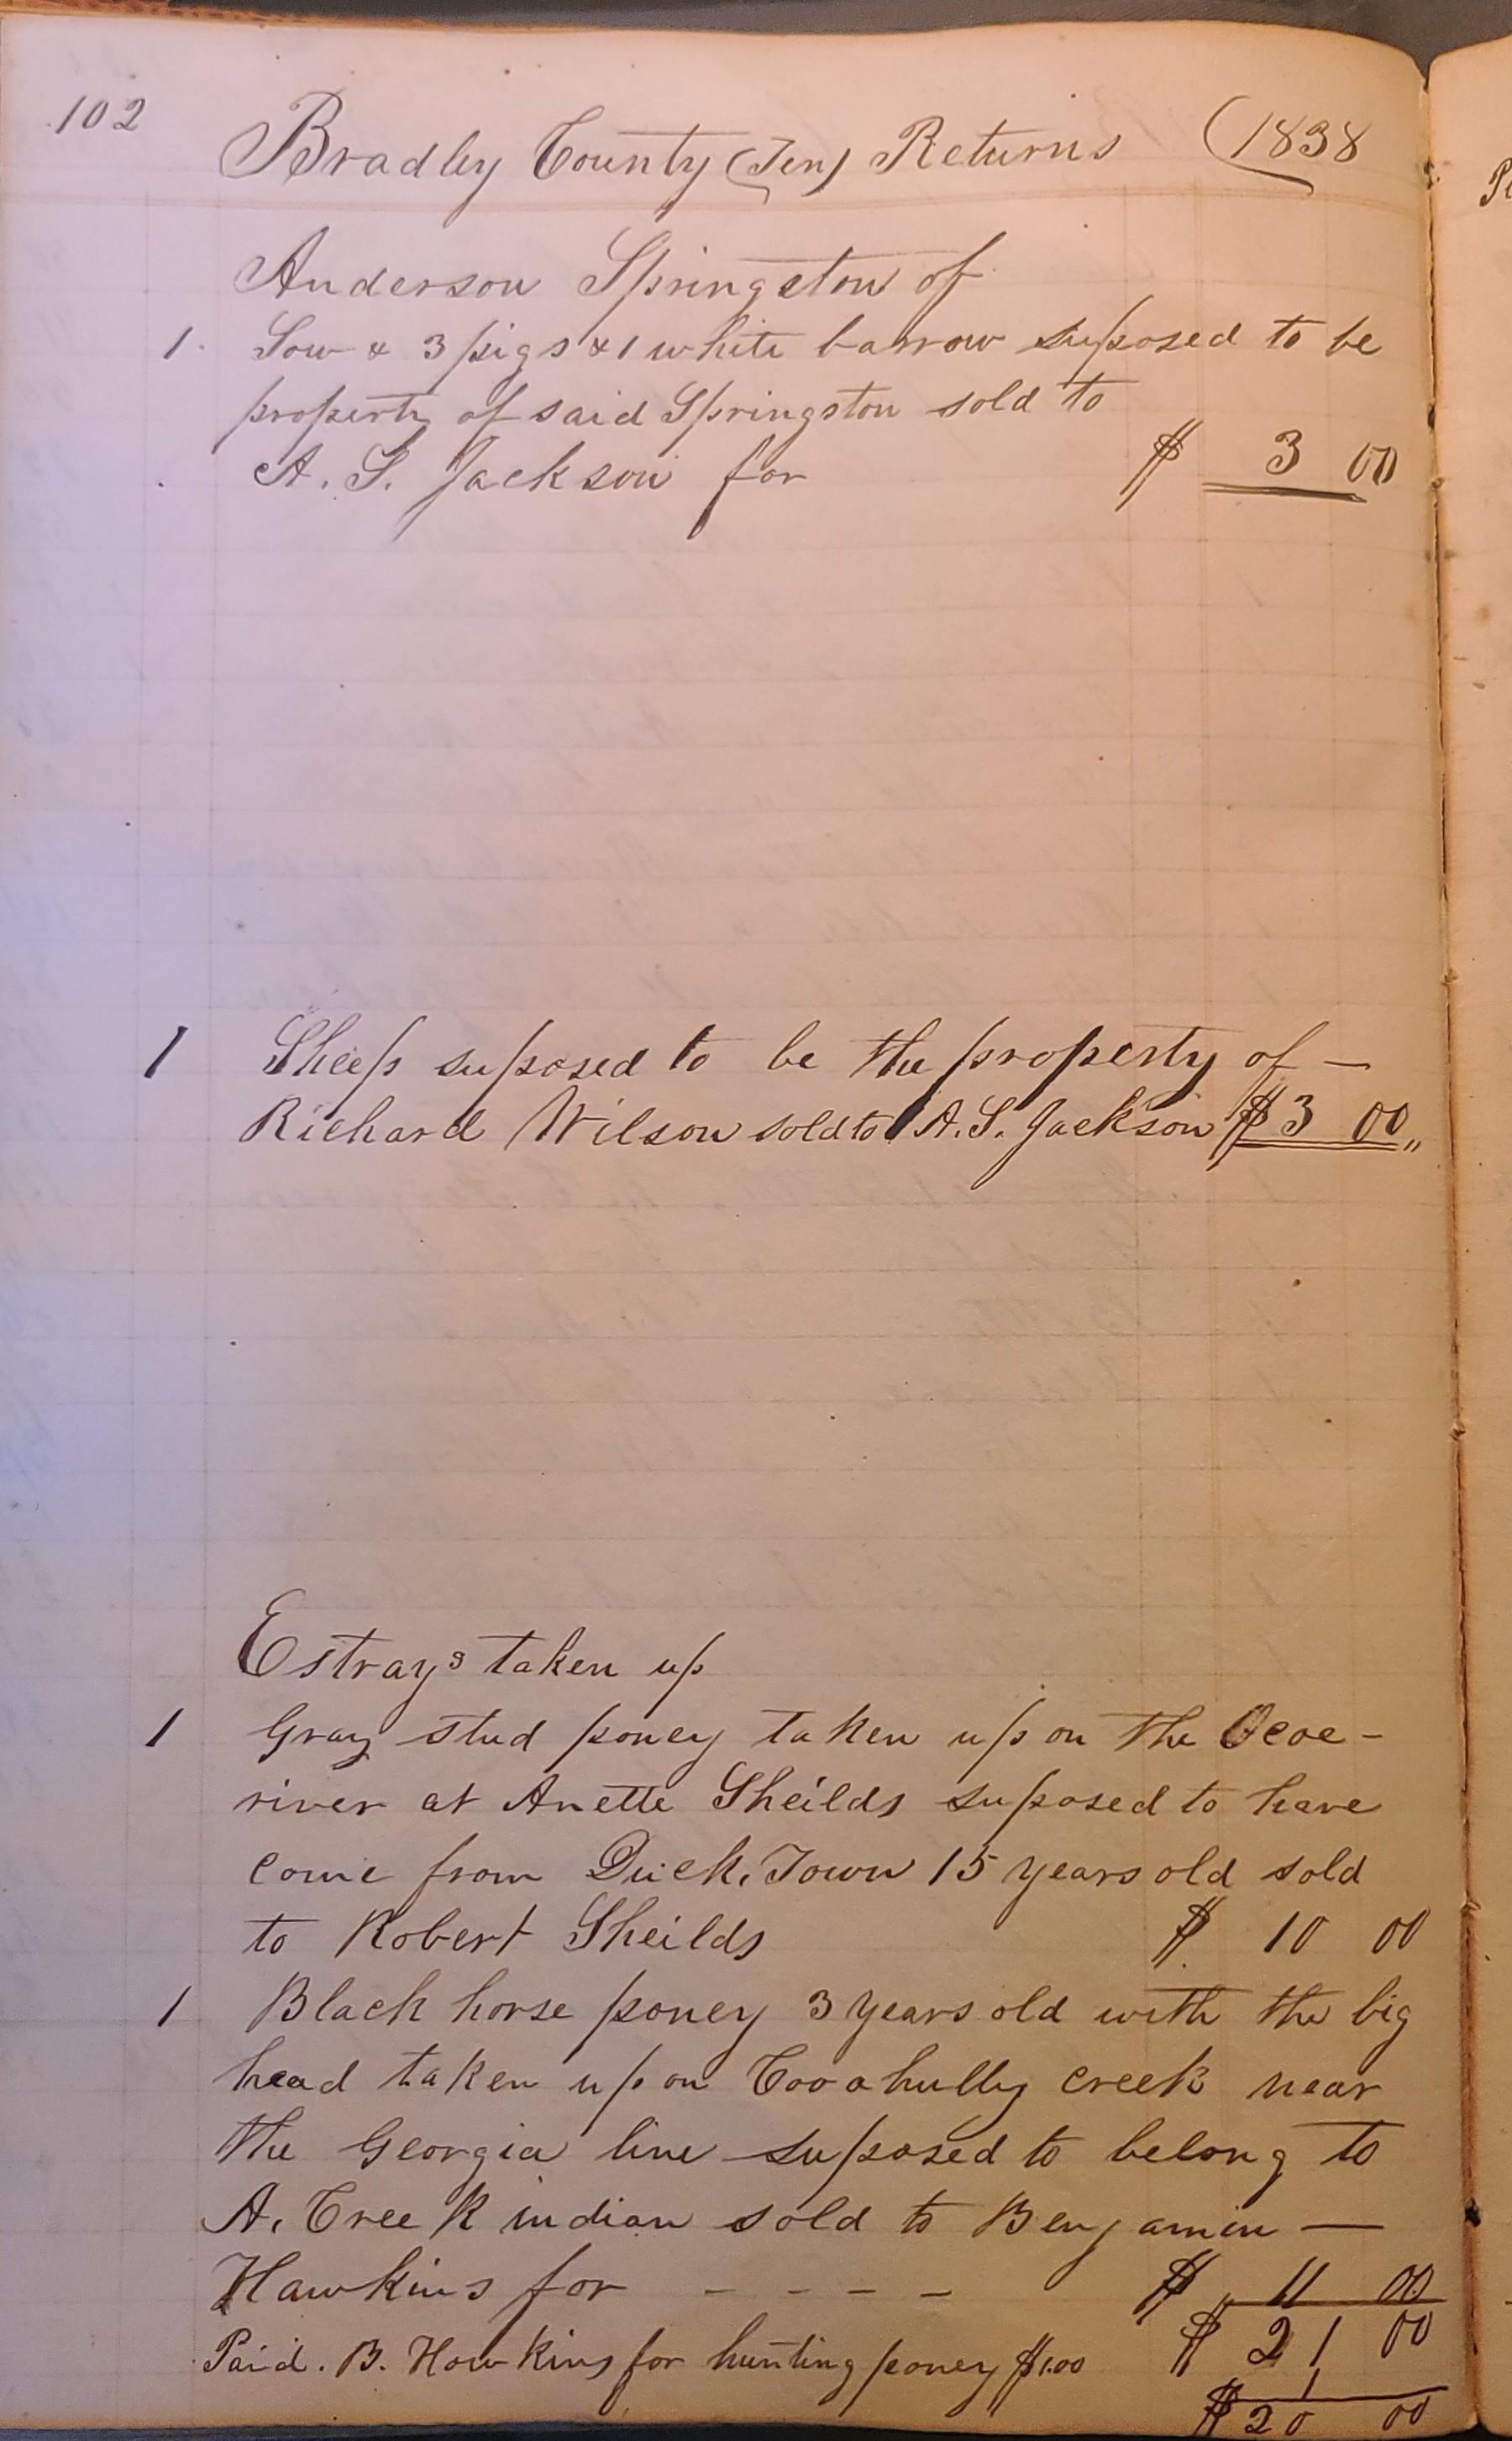 102
Bradley County (Ten) Returns (1838
Anderson Springston of
1. Sow & 3 pigs & 1 white barrow suposed to be
property of said Springston sold to
A. S. Jackson for $ 3 00
1 Sheep suposed to be the property of —
Richard Wilson sold to A. S. Jackson $ 3 00 "
Estrays taken up
1 Gray stud poney taken up on the Ocoe -
river at Anette Sheilds suposed to have
come from Duck Town 15 years old sold
to Robert Sheilds $ 10 00
1 Black horse poney 3 years old with the big
head taken up on Cooahully creek near
the Georgia line suposed to belong to
A. Creek indian sold to Benjamin —
Hawkins for - - - - $ 11 00
$ 21 00
Paid. B. Hawkins for hunting poney $1.00
1
$ 20 00